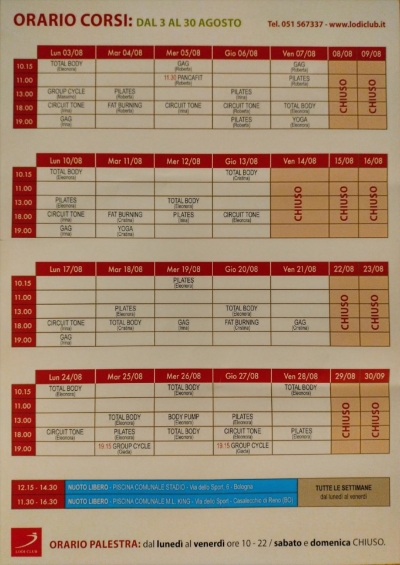 ORARIO CORSI: DAL 3 AL 30 AGOSTO Tel. 051 567337 - www.lodiclub.it
Lun 03/08 Mar 04/08 Mer 05/08 Gio 06/08 Ven 07/08 08/08 09/08
10.15 TOTAL BODY GAG GAG CHIUSO CHIUSO
11.00 11.30 PANCAFIT PILATES
13.00 GROUP CYCLE PILATES PILATES
18.00 CIRCUIT TONE FAT BURNING CIRCUIT TONE CIRCUIT TONE TOTAL BODY
19.00 GAG PILATES YOGA
Lun 10/08 Mar 11/08 Mer 12/08 Gio 13/08 Ven 14/08 15/08 16/08
10.15 TOTAL BODY TOTAL BODY CHIUSO CHIUSO CHIUSO
11.00
13.00 PILATES TOTAL BODY
18.00 CIRCUIT TONE FAT BURNING PILATES CIRCUIT TONE
19.00 GAG YOGA
Lun 17/08 Mar 18/08 Mer 19/08 Gio 20/08 Ven 21/08 22/08 23/08
10.15 PILATES CHIUSO CHIUSO
11.00
13.00 PILATES TOTAL BODY
18.00 CIRCUIT TONE TOTAL BODY GAG FAT BURNING GAG
19.00 GAG
Lun 24/08 Mar 25/08 Mer 26/08 Gio 27/08 Ven 28/08 29/08 30/09
10.15 TOTAL BODY TOTAL BODY TOTAL BODY CHIUSO CHIUSO
11.00
13.00 TOTAL BODY BODY PUMP PILATES
18.00 CIRCUIT TONE PILATES TOTAL BODY CIRCUIT TONE PILATES
19.00 GAG 19.15 GROUP CYCLE 19.15 GROUP CYCLE
12.15 - 14.30 NUOTO LIBERO - PISCINA COMUNALE STADIO - Via dello Sport, 6 - Bologna TUTTE LE SETTIMANE
11.30 - 16.30 NUOTO LIBERO - PISCINA COMUNALE M.L. KING - Via dello Sport - Casalecchio di Reno (BO) dal lunedì al venerdì
LODI CLUB
ORARIO PALESTRA: dal lunedì al venerdì ore 10 - 22 / sabato e domenica CHIUSO.